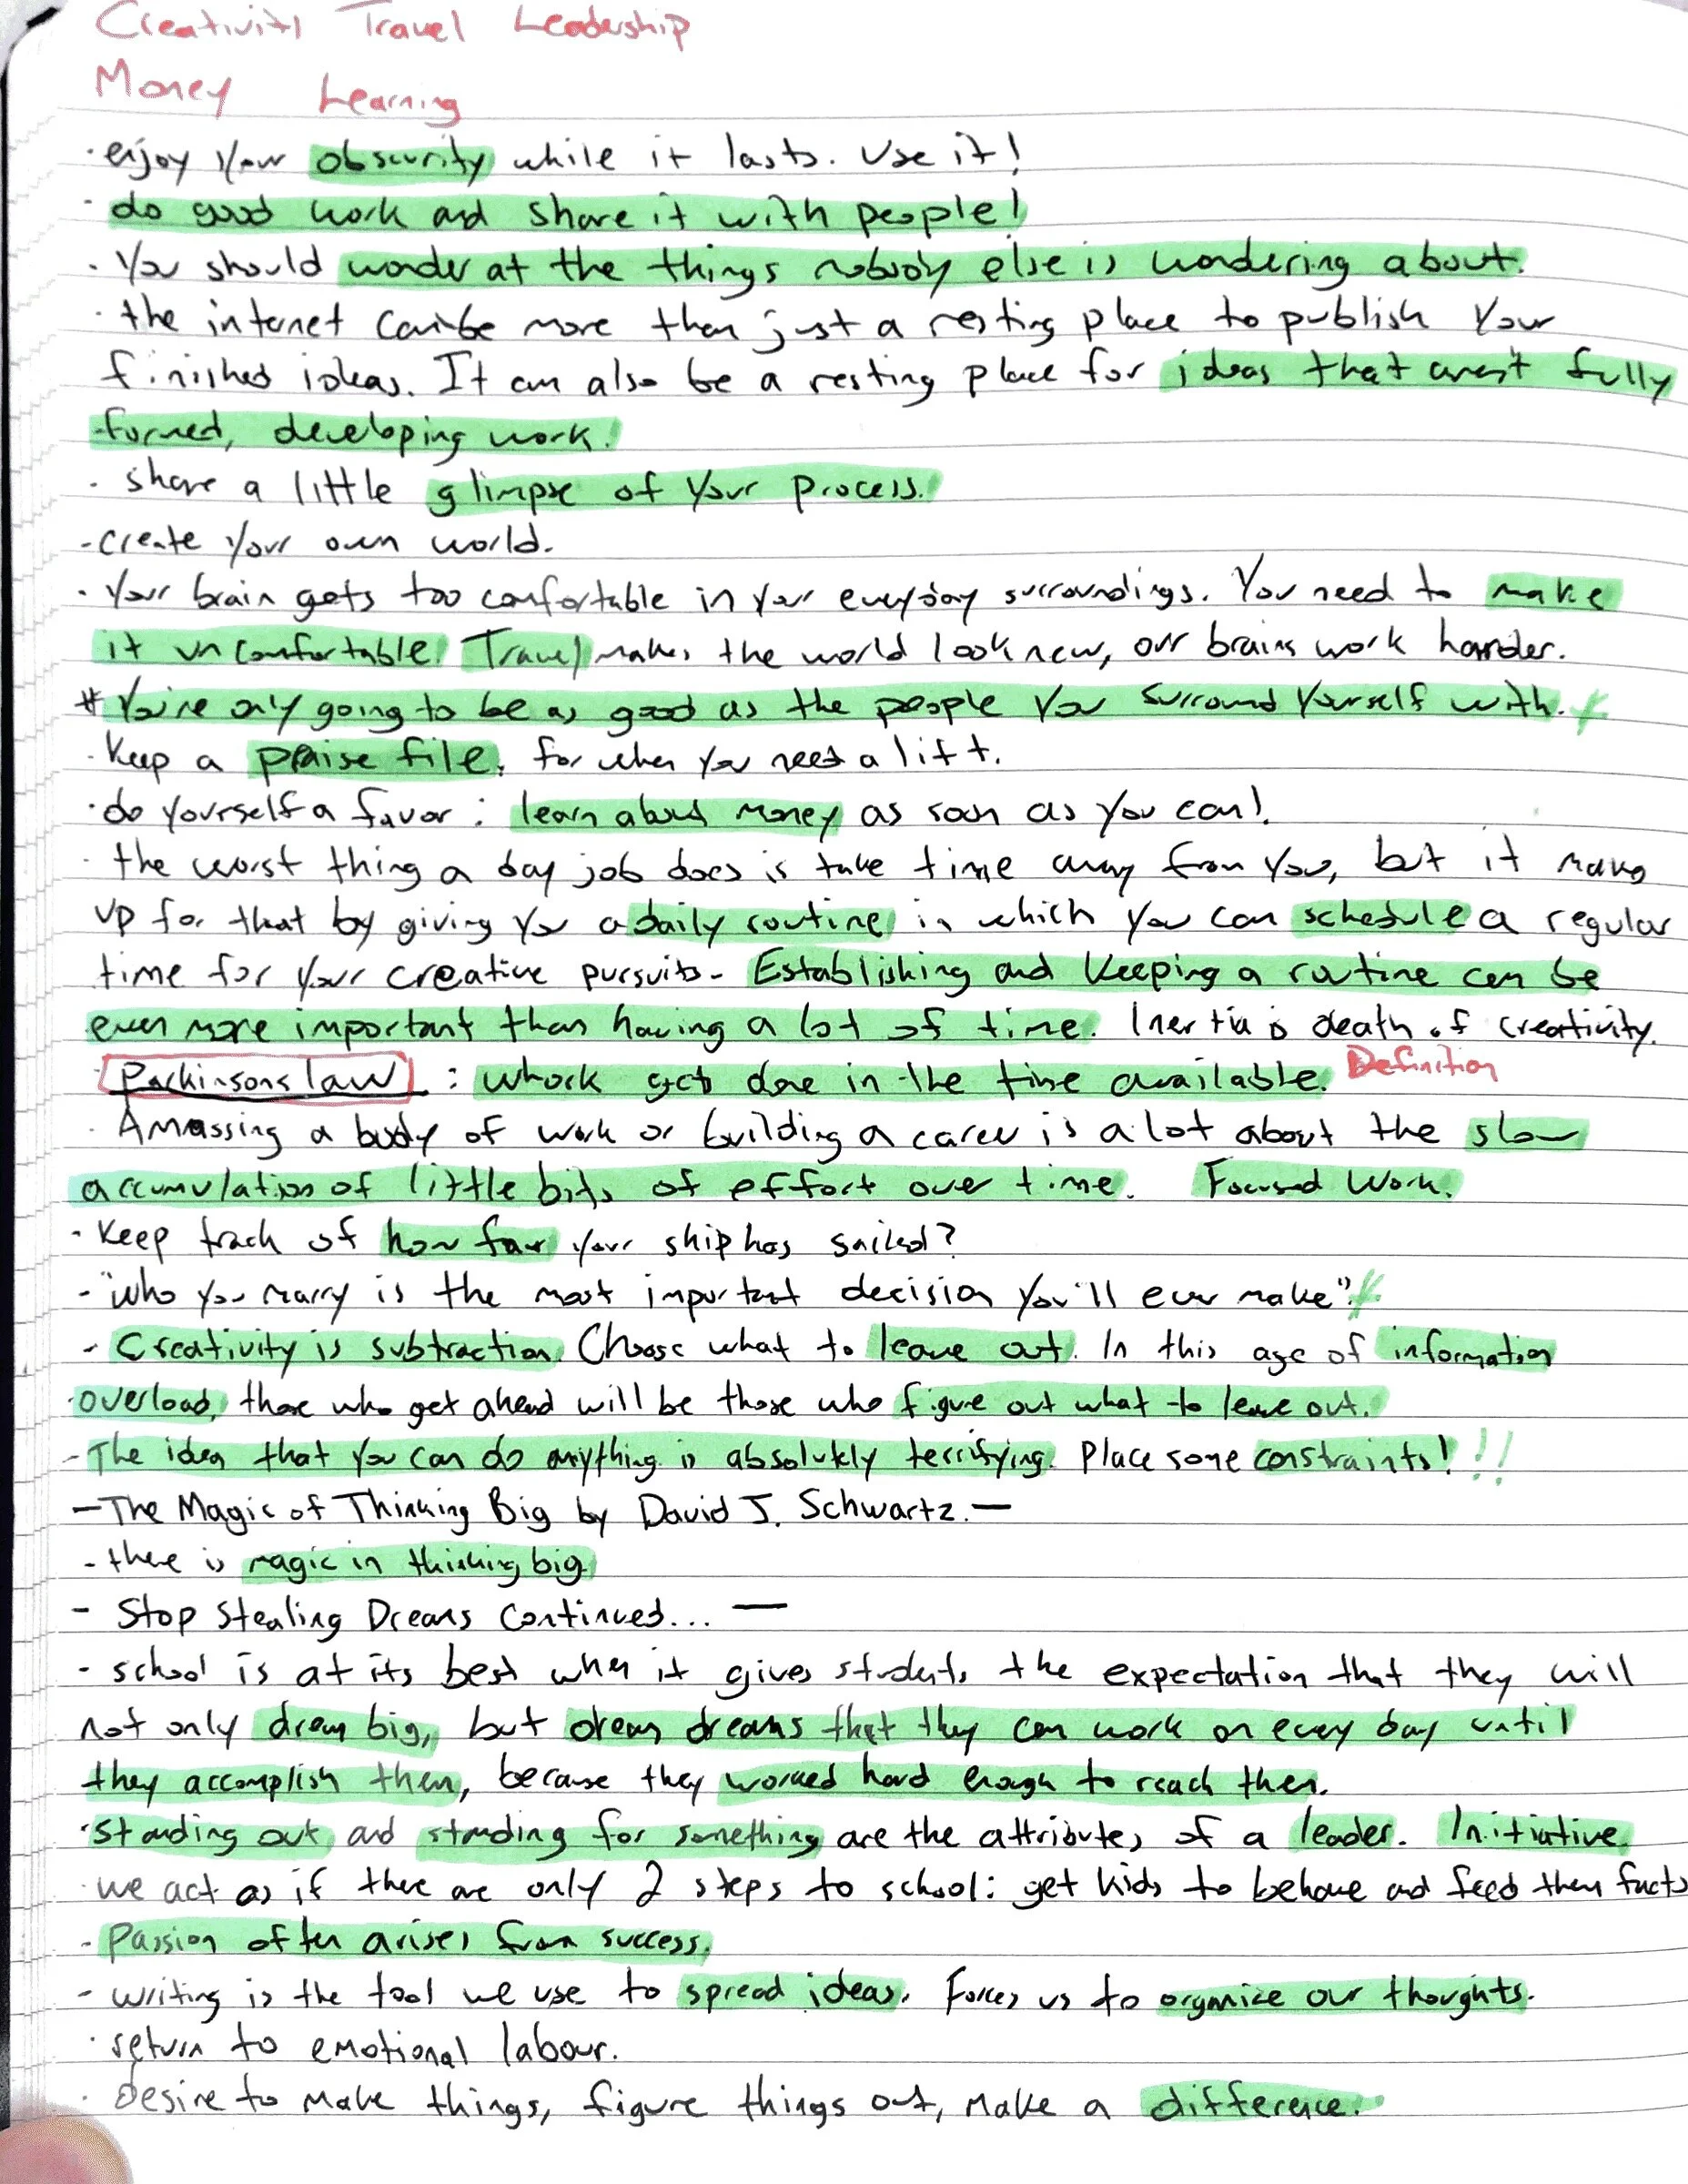 Creativity Travel Leadership
Money Learning
· enjoy your obscurity while it lasts. Use it!
· do good work and share it with people!
· You should wonder at the things nobody else is wondering about.
· the internet can be more than just a resting place to publish your
finished ideas. It can also be a resting place for ideas that aren't fully
formed, developing work!
· share a little glimpse of your process.
- create your own world.
· Your brain gets too comfortable in your everyday surroundings. You need to make
it uncomfortable! Travel makes the world look new, our brains work harder.
* You're only going to be as good as the people you surround yourself with. *
· Keep a praise file. for when you need a lift.
· do yourself a favor : learn about money as soon as you can!
· the worst thing a day job does is take time away from you, but it makes
up for that by giving you a daily routine in which you can schedule a regular
time for your creative pursuits - Establishing and keeping a routine can be
even more important than having a lot of time. Inertia is death of creativity.
Parkinsons law : whork gets done in the time available. Definition
· Amassing a body of work or building a career is a lot about the slow
accumulation of little bits of effort over time. Focused Work.
· Keep track of how far your ship has sailed?
- "Who you marry is the most important decision you'll ever make". *
- Creativity is subtraction. Choose what to leave out. In this age of information
overload, those who get ahead will be those who figure out what to leave out.
- The idea that you can do anything is absolutely terrifying. Place some constraints! !!
— The Magic of Thinking Big by David J. Schwartz. —
- there is magic in thinking big.
- Stop Stealing Dreams Continued... —
- school is at its best when it gives students the expectation that they will
not only dream big, but dream dreams that they can work on every day until
they accomplish them, because they worked hard enough to reach them.
· Standing out and standing for something are the attributes of a leader. Initiative.
· we act as if there are only 2 steps to school: get kids to behave and feed them facts
- Passion often arises from success.
- writing is the tool we use to spread ideas. Forces us to organize our thoughts.
· return to emotional labour.
· desire to make things, figure things out, make a difference.